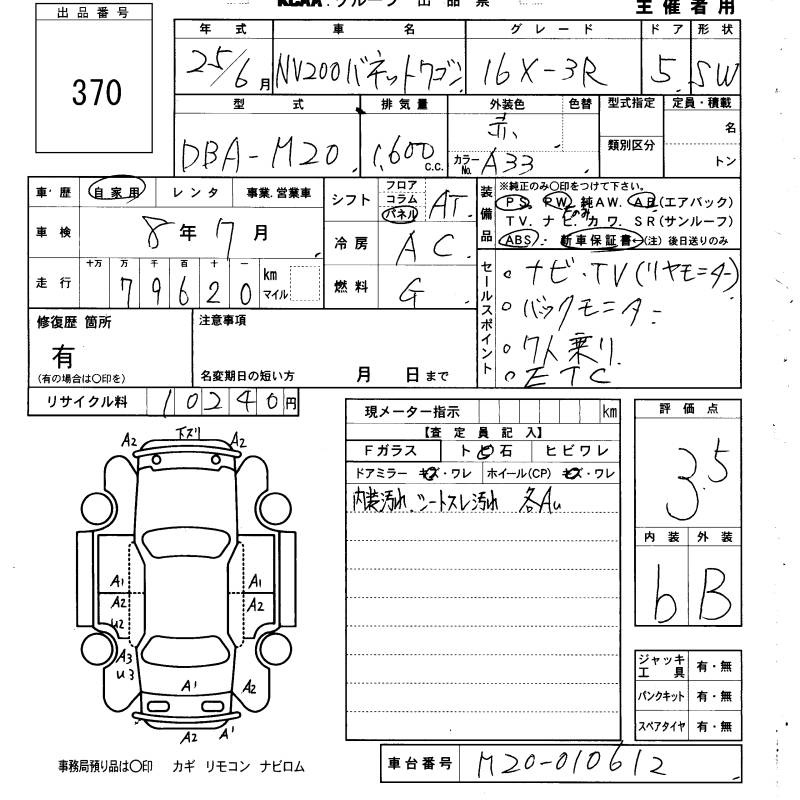 KCAA グループ 出 品 票
主 催 者 用
出 品 番 号
370
年 式 車 名 グ レ ー ド ド ア 形 状
25/6月 NV200バネットワゴン 16X-3R 5 SW
型 式 排 気 量 外装色 色替 型式指定 定員・積載
DBA-M20 1,600c.c. 赤 カラーNo. A33 類別区分 名
トン
車・歴 自家用 レ ン タ 事業.営業車
車 検 8年 7月
走 行 十万 万 千 百 十 一 km マイル
7 9 6 2 0
シフト フロア コラム パネル AT
冷 房 AC
燃 料 G
装備品
※純正のみ〇印をつけて下さい。
PS. PW. 純AW. AB(エアバック)
TV. ナ ビ. カ ワ. SR(サンルーフ)
のみ
ABS. 新車保証書←(注) 後日送りのみ
セールスポイント
○ ナビ・TV(リヤモニター)
○ バックモニター
○ 7人乗り
○ ETC
修復歴 箇所
有
(有の場合は〇印を)
注意事項
名変期日の短い方 月 日まで
リサイクル料 10240円
A2 下ズリ A2
A1 A1
A2 A2
U2
A3
U3
A1 A2
A2 A1
事務局預り品は〇印 カギ リモコン ナビロム
現メーター指示 km
【査 定 員 記 入】
Fガラス ト ビ 石 ヒ ビ ワ レ
ドアミラー キズ・ワレ ホイール(CP) キズ・ワレ
内装汚れ、シートスレ汚れ 各AU
評 価 点
3.5
内 装 外 装
b B
ジャッキ工 具 有・無
パンクキット 有・無
スペアタイヤ 有・無
車台番号 M20-010612